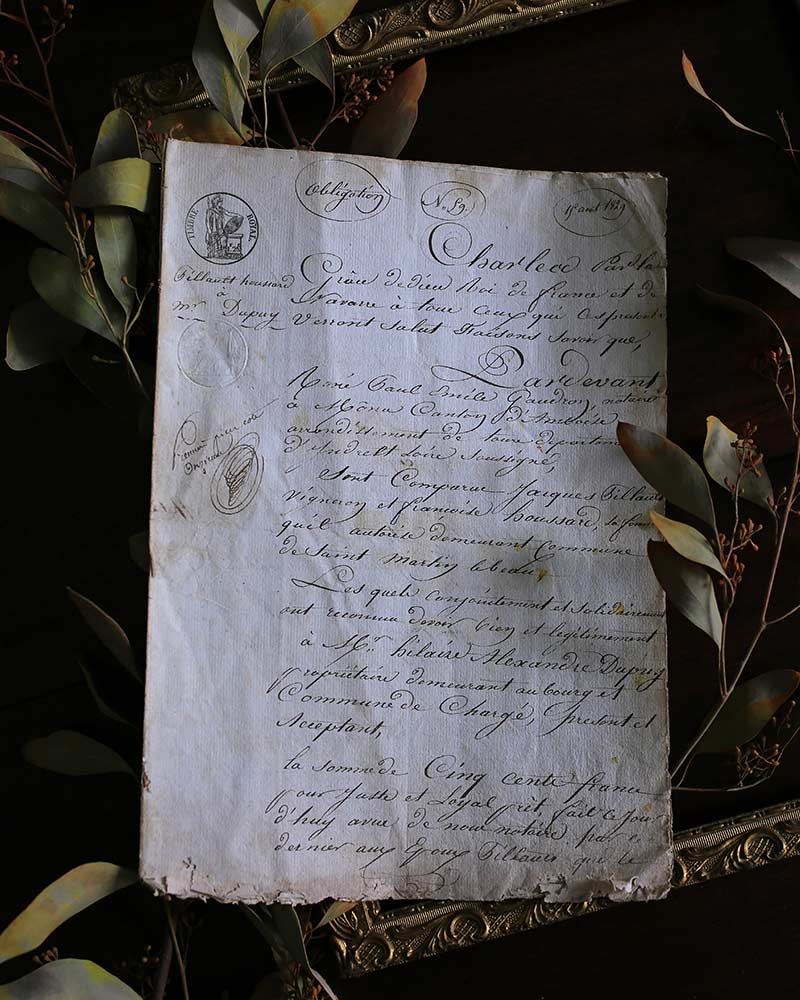 Obligation
N.° 59.
1er aout 1829
TIMBRE ROYAL
Charles Par la
Grâce de dieu Roi de france et de
Navarre à tous Ceux qui Ces presentes
Verront Salut faisons Savoir que,
Tillault houssard
à
mr Dupuy
Pardevant
René Paul Emile Gaudron notaire
à Canton d'Amboise
arrondissement de tours département
d'Indre et Loire Soussigné,
Sont Comparus Jacques Tillault
Vigneron et françoise houssard, sa femme
qu'il autorise demeurant Commune
de Saint Martin lebeau,
Les quels Conjointement et Solidairement
ont reconnu devoir bien et légitimement
à Mr. hilaire Alexandre Dupuy
propriétaire demeurant au bourg et
Commune de Chargé, présent et
Acceptant,
la somme de Cinq Cents francs
pour Juste et Loyal prêt, fait le Jour
d'huy avue de nous notaire par ce
dernier aux Epoux Tillault qui le